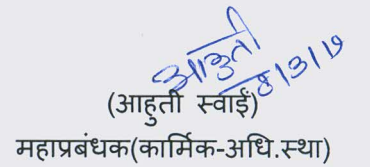 आहुती
8/3/19
(आहुती स्वाईं)
महाप्रबंधक(कार्मिक-अधि.स्था)